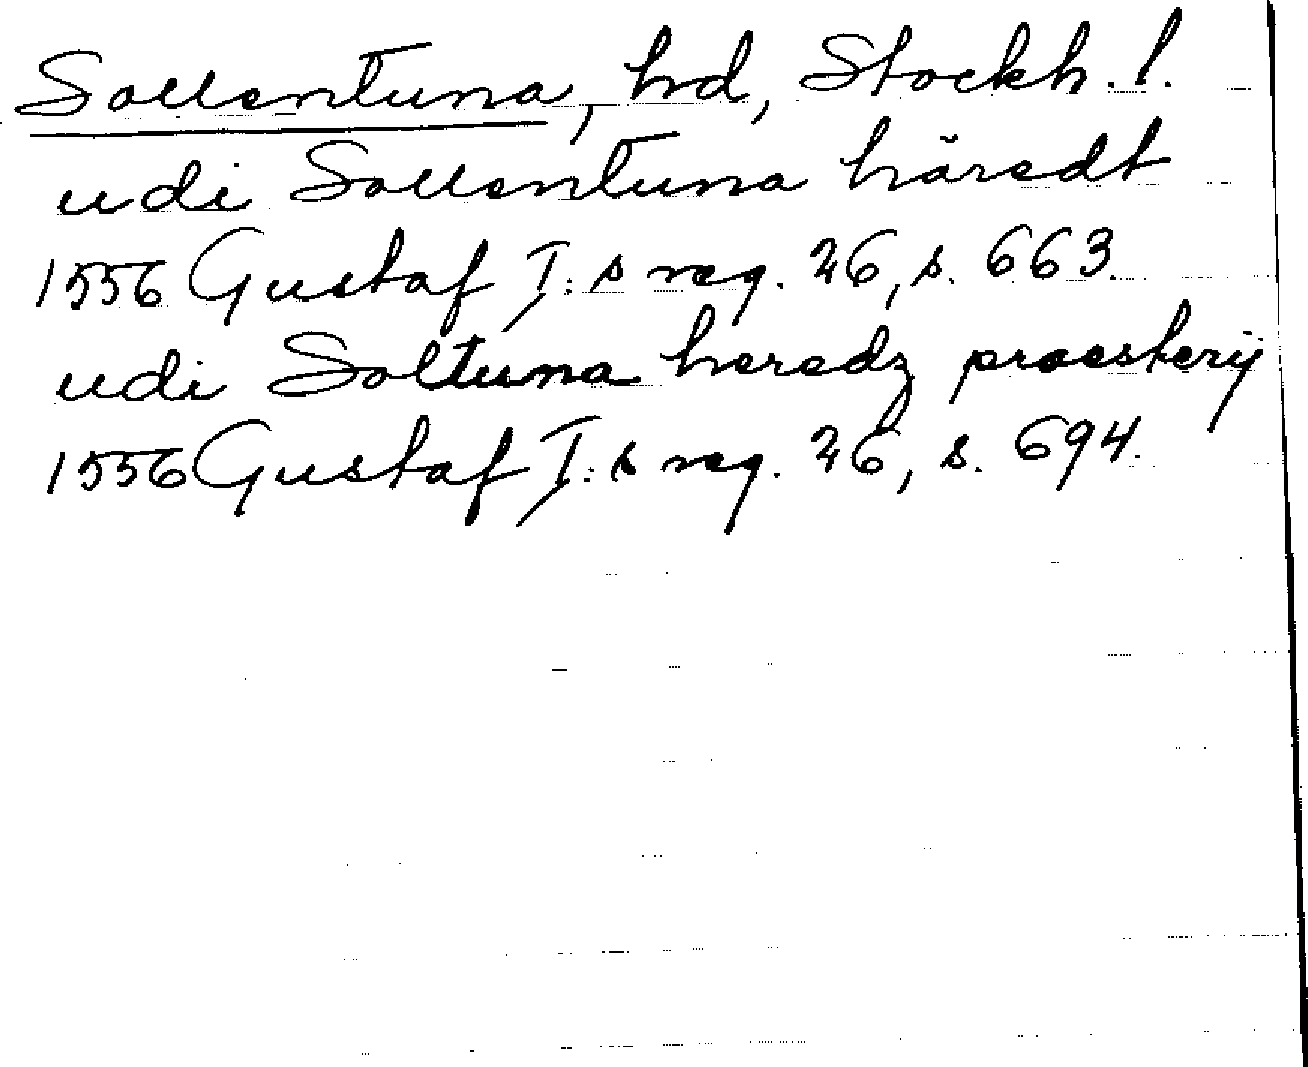 Sollentuna, hd, Stockh. l.
udi Sollentuna häredt
1556 Gustaf I:s reg. 26, s. 663.
udi Soltuna heredz praesterij
1556 Gustaf I:s reg. 26, s. 694.